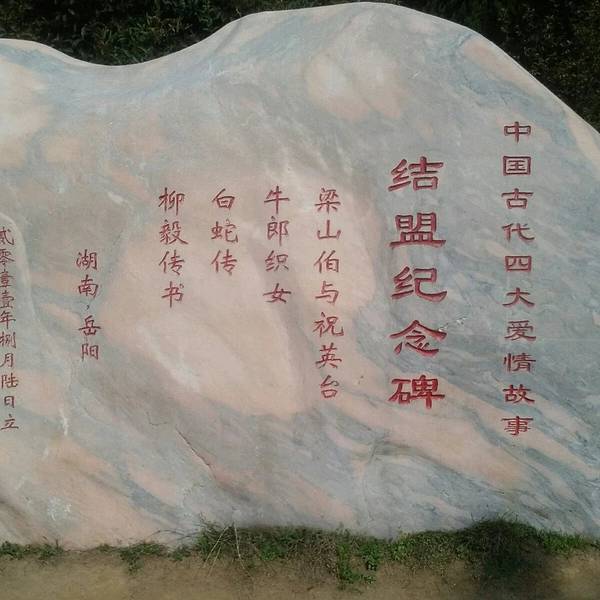 中国古代四大爱情故事
结盟纪念碑
梁山伯与祝英台
牛郎织女
白蛇传
柳毅传书
湖南·岳阳
贰零壹壹年捌月陆日立